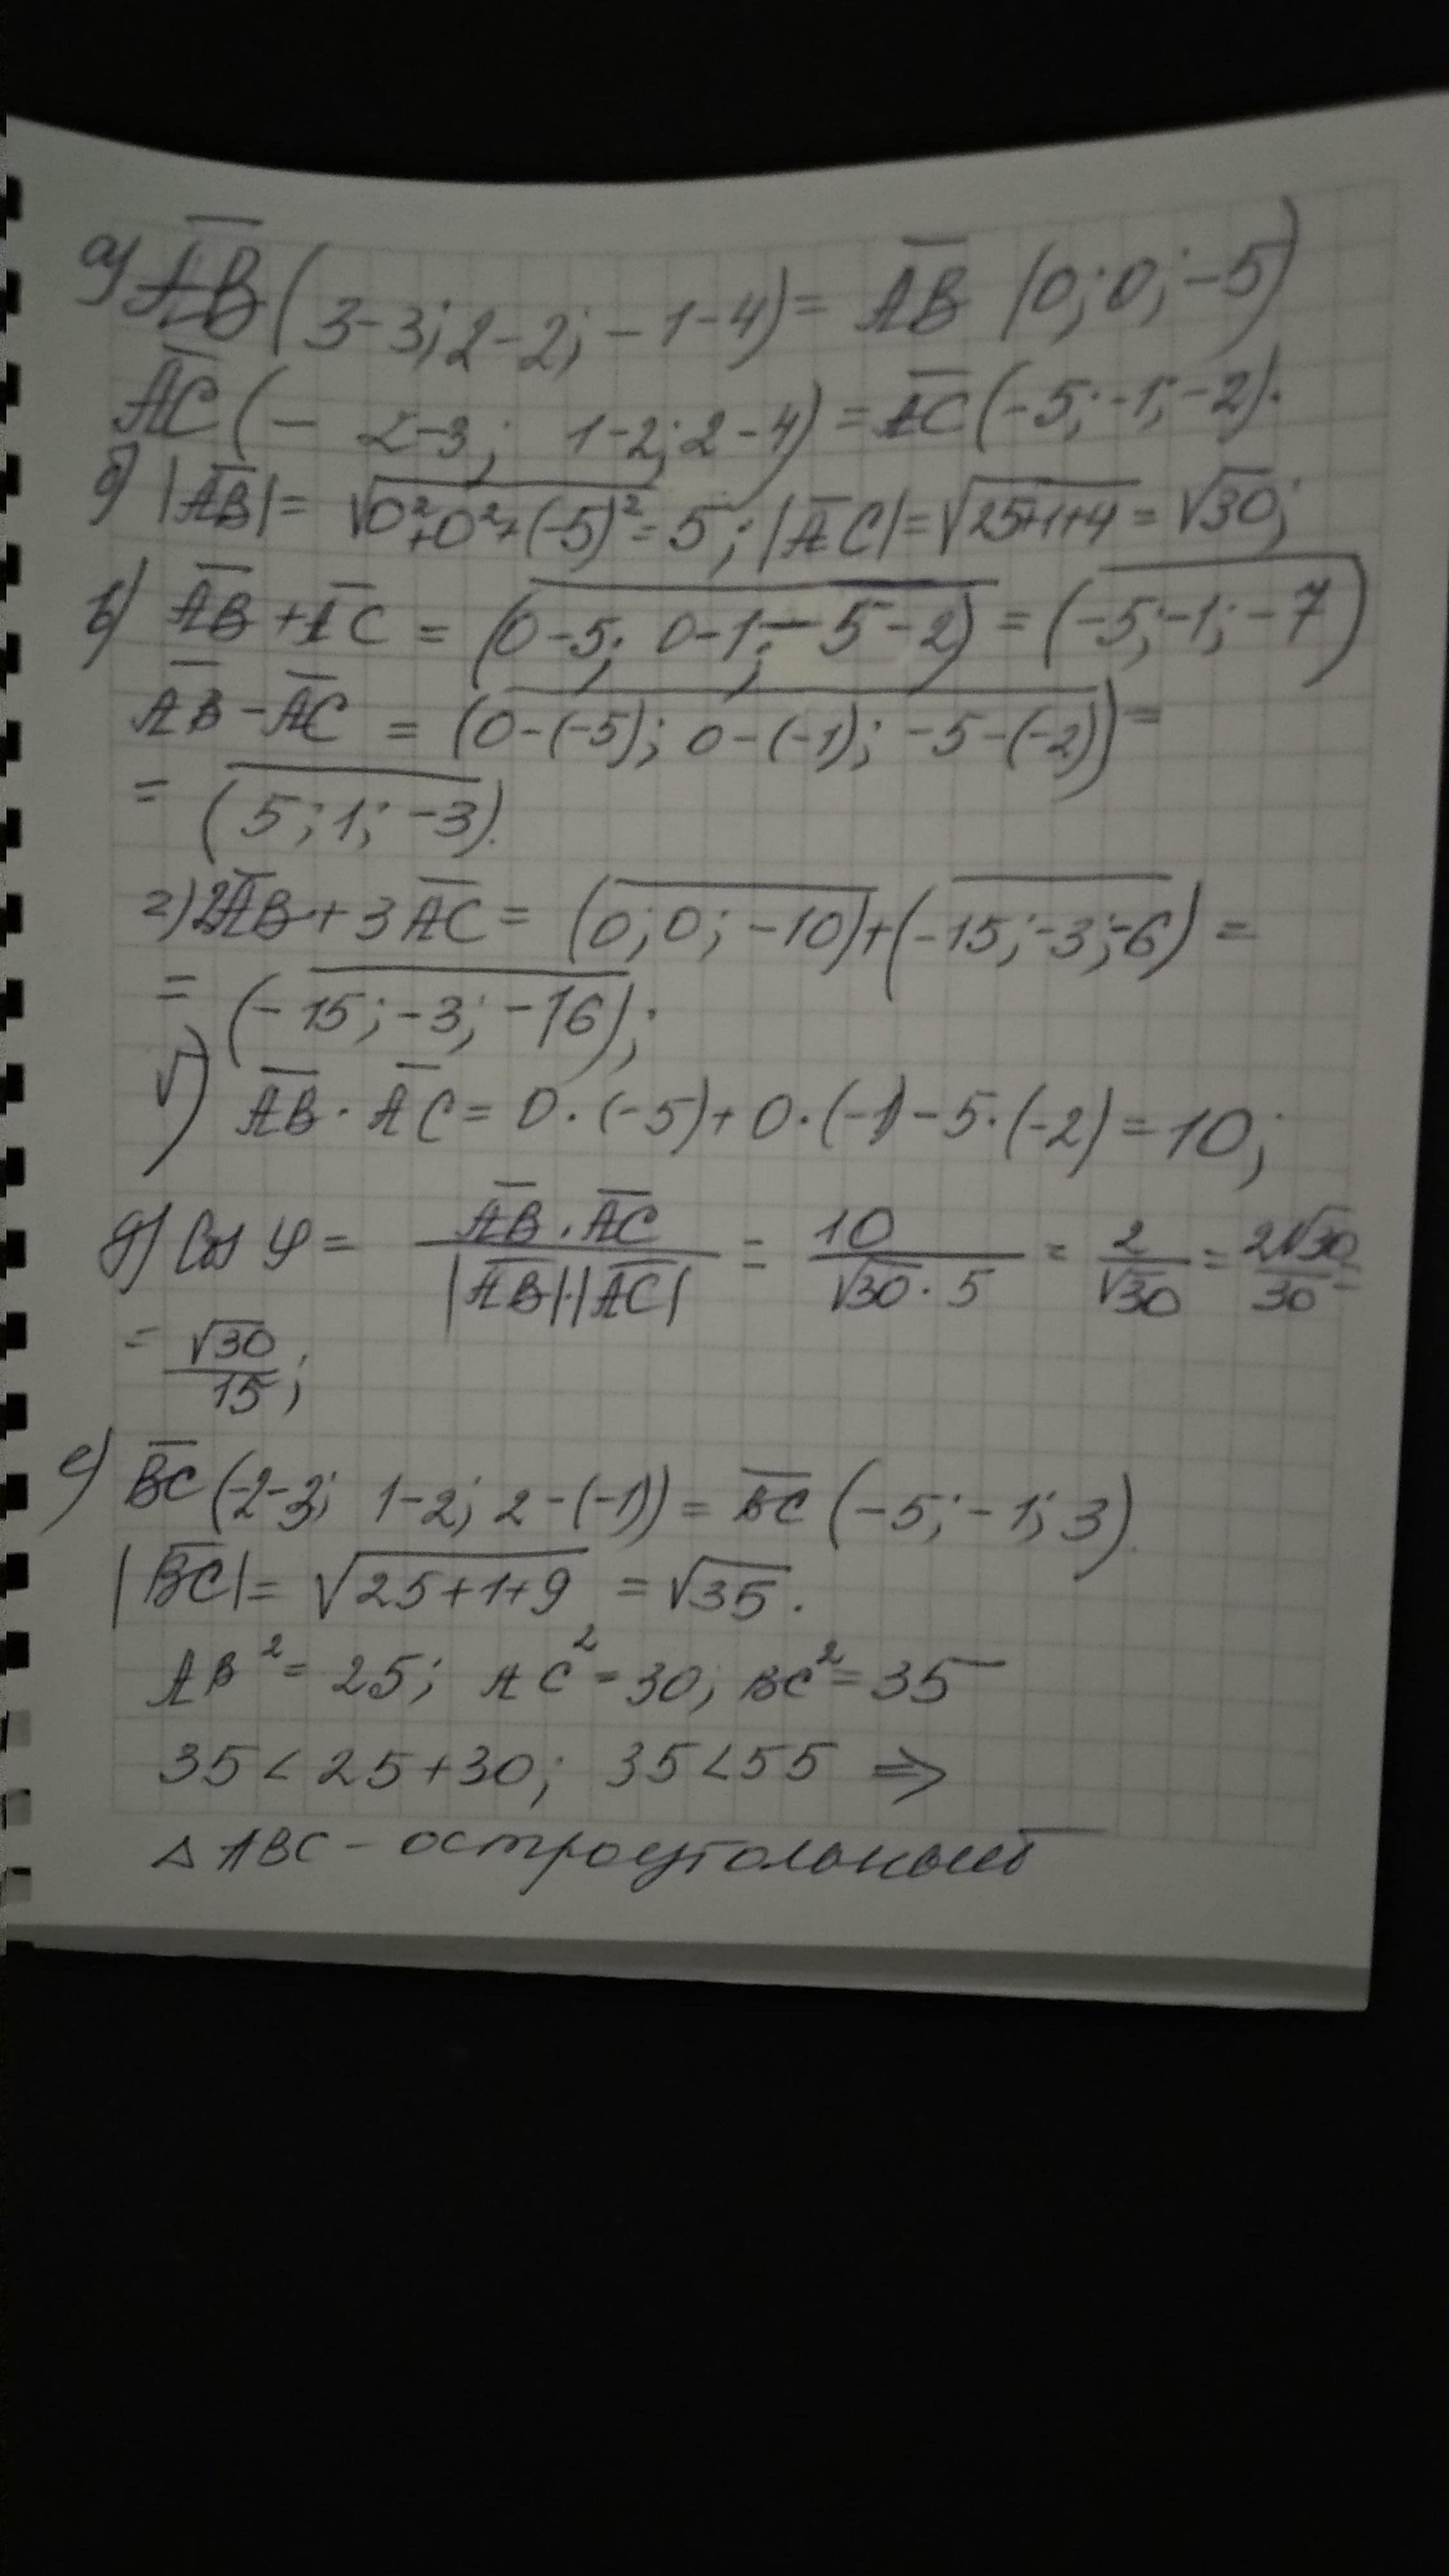 а) A̅B̅ (3-3; 2-2; -1-4) = A̅B̅ (0; 0; -5)
A̅C̅ (- 2-3; 1-2; 2-4) = A̅C̅ (-5; -1; -2).
б) |A̅B̅| = √0²+0²+(-5)² = 5; |A̅C̅| = √25+1+4 = √30;
в) A̅B̅ + A̅C̅ = (0-5; 0-1; -5-2) = (-5; -1; -7)
A̅B̅ - A̅C̅ = (0-(-5); 0-(-1); -5-(-2)) =
= (5; 1; -3).
г) 2A̅B̅ + 3A̅C̅ = (0; 0; -10) + (-15; -3; -6) =
= (-15; -3; -16);
√) A̅B̅ · A̅C̅ = 0·(-5) + 0·(-1) - 5·(-2) = 10;
д) Cos φ = A̅B̅ · A̅C̅ / |A̅B̅|·|A̅C̅| = 10 / √30 · 5 = 2/√30 = 2√30/30 =
= √30/15;
е) B̅C̅ (-2-3; 1-2; 2-(-1)) = B̅C̅ (-5; -1; 3).
|B̅C̅| = √25+1+9 = √35.
AB² = 25; AC² = 30; BC² = 35
35 < 25+30; 35 < 55 ⇒
△ ABC - остроугольный